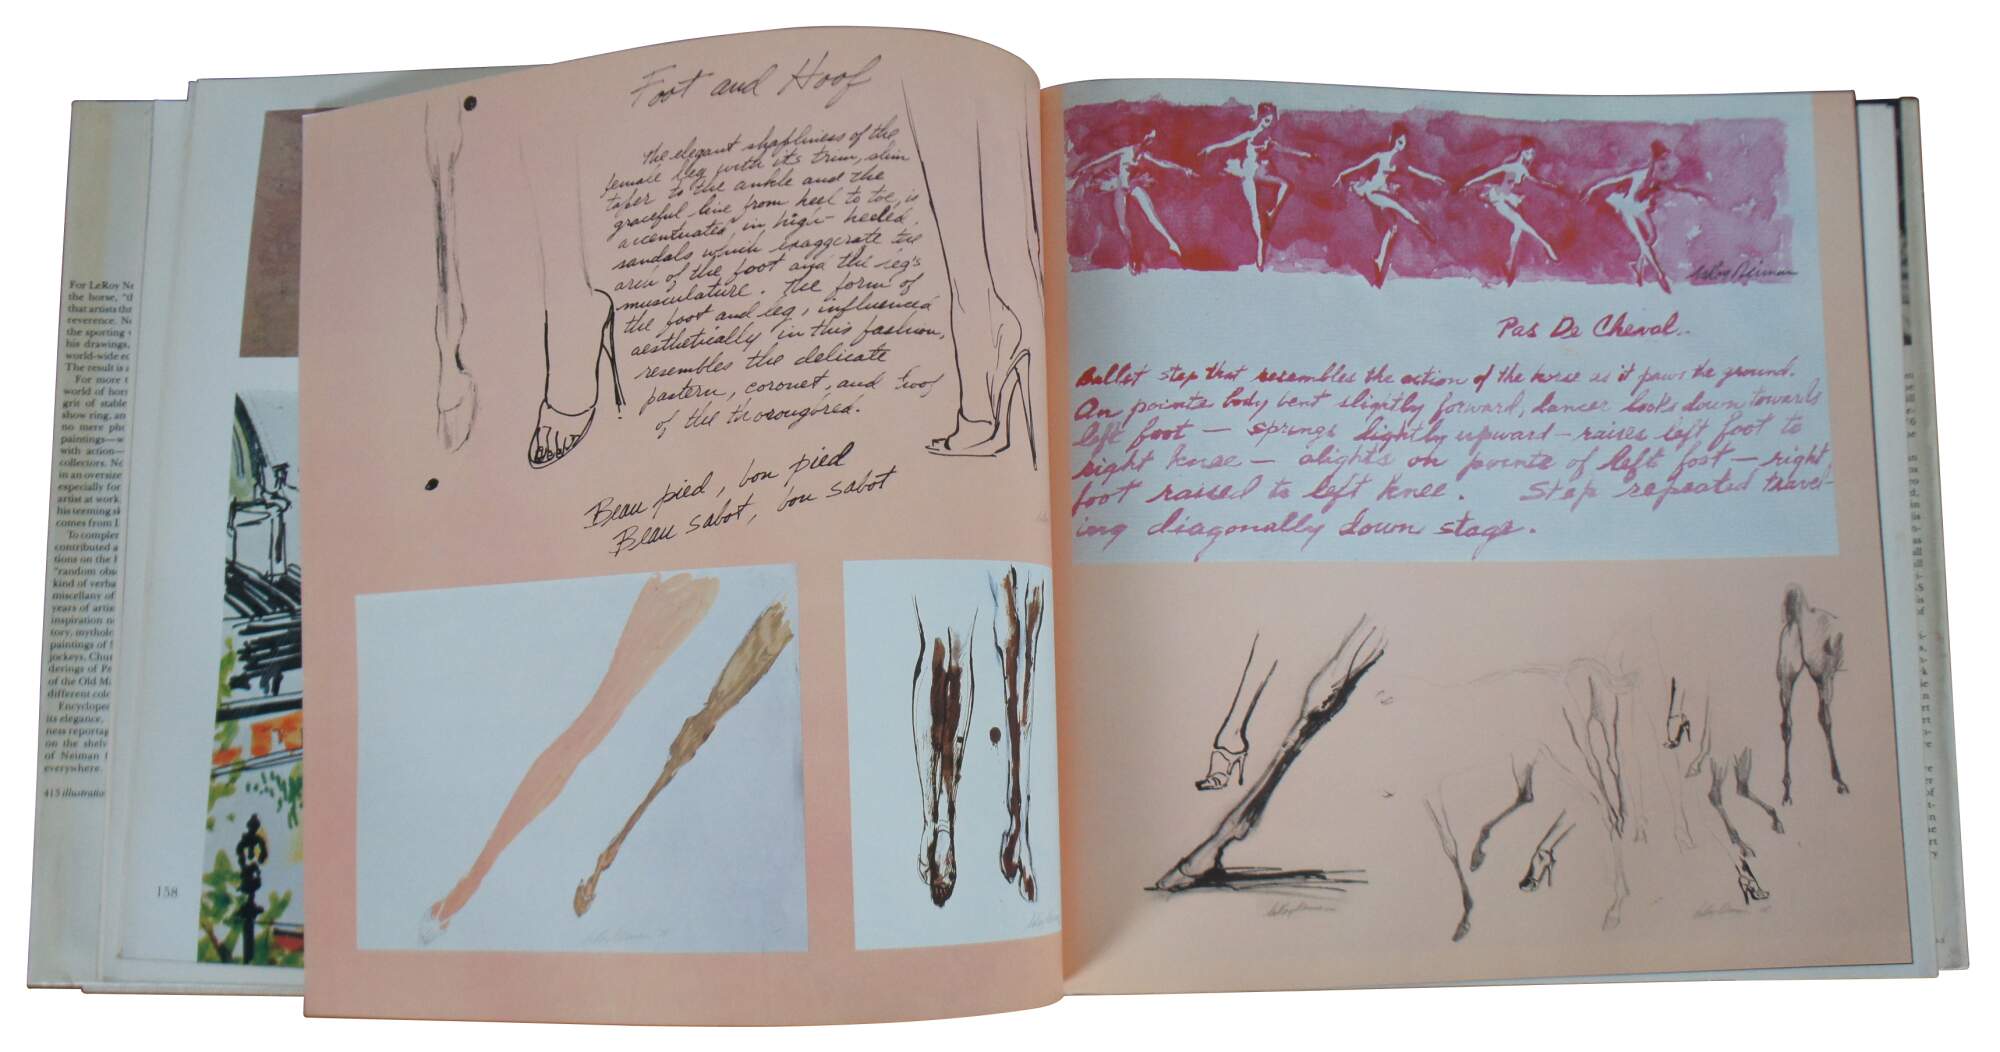 For LeRoy Ne
the horse, "th
that artists thr
reverence. Ne
the sporting
his drawings,
world-wide ed
The result is a
For more t
world of hors
grit of stable
show ring, an
no mere pho
paintings—w
with action—
collectors. Ne
in an oversize
especially for
artist at work
his teeming sk
comes from I
To complem
contributed a
tions on the h
"random obs
kind of verba
miscellany of
years of artis
inspiration n
tory, mytholo
paintings of f
jockeys, Chur
derings of Pe
of the Old Ma
different colo
Encyclope
its elegance,
ness reportag
on the shelv
of Neiman f
everywhere.
413 illustratio
158
Foot and Hoof
The elegant shapliness of the
female leg with its trim, slim
taper to the ankle and the
graceful line from heel to toe, is
accentuated in high-heeled
sandals which exaggerate the
area of the foot and the leg's
musculature. The form of
the foot and leg, influenced
aesthetically in this fashion,
resembles the delicate
pastern, coronet, and hoof
of the thorougbred.
Beau pied, bon pied
Beau sabot, bon sabot
LeRoy Neiman
LeRoy Neiman
Pas De Cheval..
Ballet step that resembles the action of the horse as it paws the ground.
On pointe body bent slightly forward, dancer looks down towards
left foot — springs lightly upward — raises left foot to
right knee — alights on pointe of left foot — right
foot raised to left knee. Step repeated travel-
ing diagonally down stage.
LeRoy Neiman
LeRoy Neiman